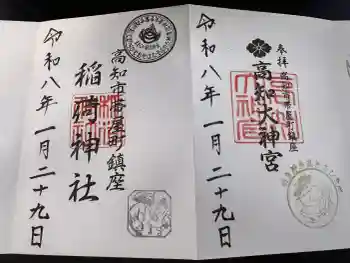 参拝 高知市帯屋町鎮座
高知大神宮
令和八年一月二十九日
高知市帯屋町鎮座
稲荷神社
令和八年一月二十九日